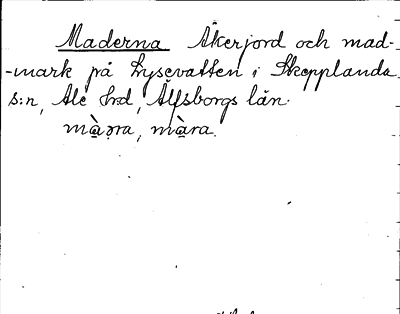 Maderna Åkerjord och mad-
-mark på Lysevatten i Skepplanda
s:n, Ale hrd, Älfsborgs län.
màəra, màra.